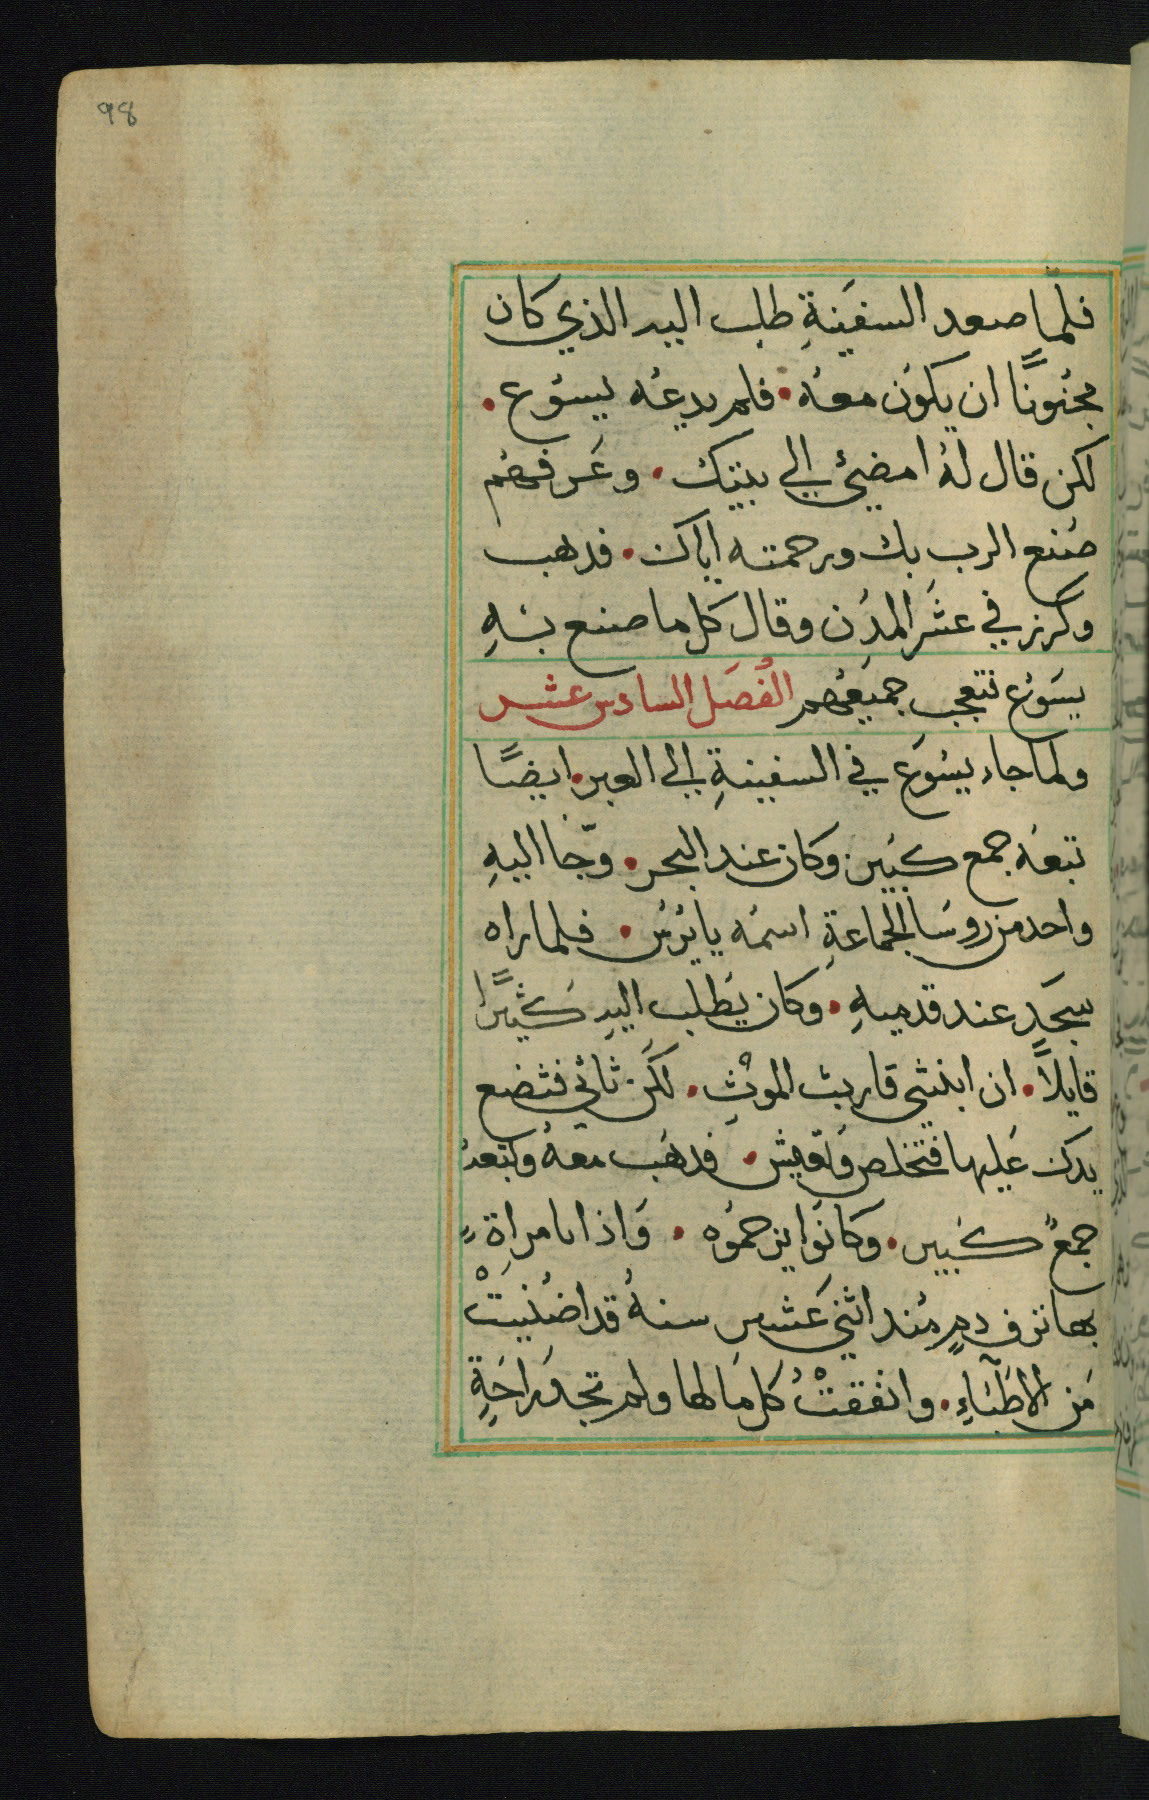 98
فلمّا صعد السفينةِ طلب اليه الذي كان
مجنونًا ان يكون معهُ • فلم يدعُه يسوع •
لكن قال لهُ امضيُ الي بيتك • وعَرفهُم
صُنع الرب بك ورحمته اياك • فدهب
وكرز في عشَر المدُن وقال كل ما صنع بهِ
يسَوع فتعجب جميعُهم الفَصَل السادس عشر
ولما جاء يسَوَع في السفينةِ الي العبر • ايضًا
تبعَه جمع كبير • وكان عند البحر • وجّا اليهِ
واحد من روسَا الجماعةِ اسمُه يايرُس • فلما راه
سجَد عند قدميهِ • وكان يَطلب اليهِ كثيرًا
قايلاً • ان ابنتي قاربت الموْتِ • لكن ثاتي فتضع
يدك عَليها فتخلص وتعيش • فدهَب معهُ وتبعهُ
جمعُ كبير • وكانوا يزحموُه • وَاذا امراةٍ
بها نزف دمٍ مُند اثني عَشر سنةُ قد اضنُيتْ
مَن الاطَبَّاءِ • وانفقتْ كل مَالها ولم تجد رَاحَةٍ